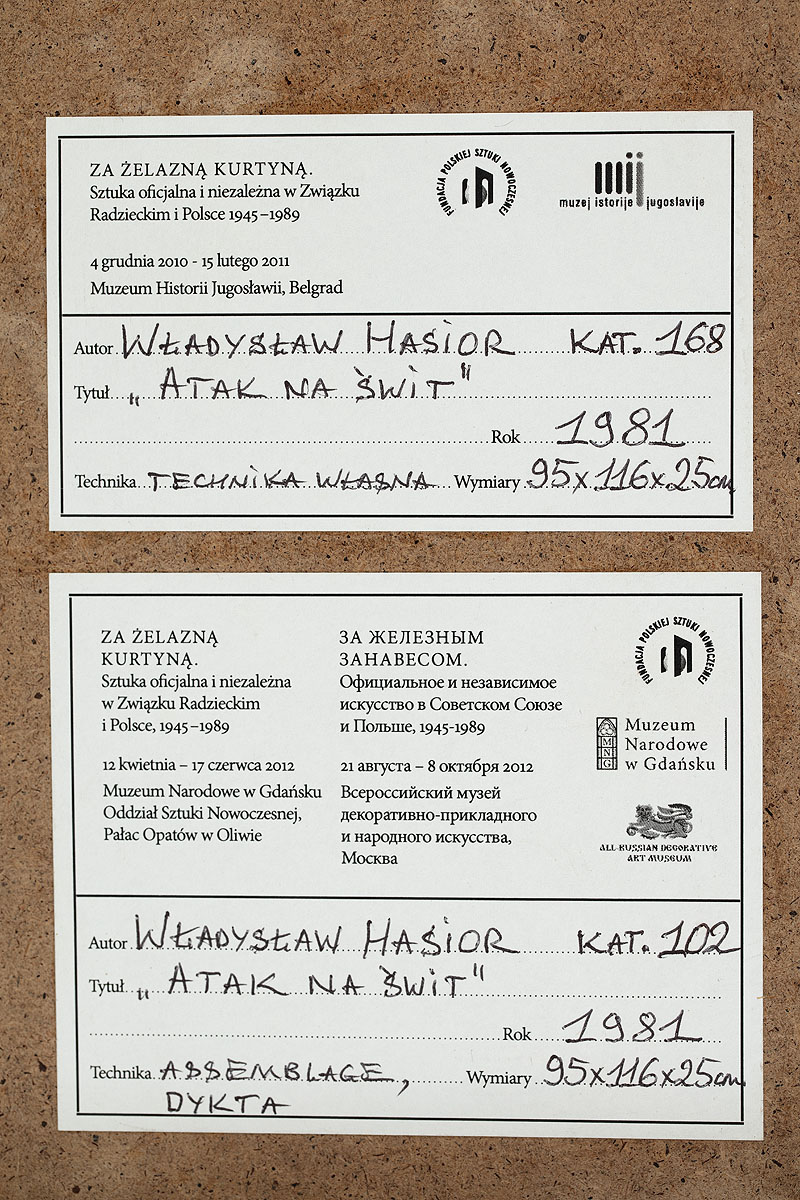 ZA ŻELAZNĄ KURTYNĄ.
Sztuka oficjalna i niezależna w Związku
Radzieckim i Polsce 1945–1989
4 grudnia 2010 - 15 lutego 2011
Muzeum Historii Jugosławii, Belgrad
FUNDACJA POLSKIEJ SZTUKI NOWOCZESNEJ
muzej istorije jugoslavije
Autor WŁADYSŁAW HASIOR KAT. 168
Tytuł „ATAK NA ŚWIT"
Rok 1981
Technika TECHNIKA WŁASNA Wymiary 95x116x25cm
ZA ŻELAZNĄ
KURTYNĄ.
Sztuka oficjalna i niezależna
w Związku Radzieckim
i Polsce, 1945–1989
12 kwietnia – 17 czerwca 2012
Muzeum Narodowe w Gdańsku
Oddział Sztuki Nowoczesnej,
Pałac Opatów w Oliwie
ЗА ЖЕЛЕЗНЫМ
ЗАНАВЕСОМ.
Официальное и независимое
искусство в Советском Союзе
и Польше, 1945-1989
21 августа – 8 октября 2012
Всероссийский музей
декоративно-прикладного
и народного искусства,
Москва
FUNDACJA POLSKIEJ SZTUKI NOWOCZESNEJ
MNG
Muzeum
Narodowe
w Gdańsku
ALL-RUSSIAN DECORATIVE
ART MUSEUM
Autor WŁADYSŁAW HASIOR KAT. 102
Tytuł „ATAK NA ŚWIT"
Rok 1981
Technika ASSEMBLAGE, Wymiary 95x116x25cm
DYKTA